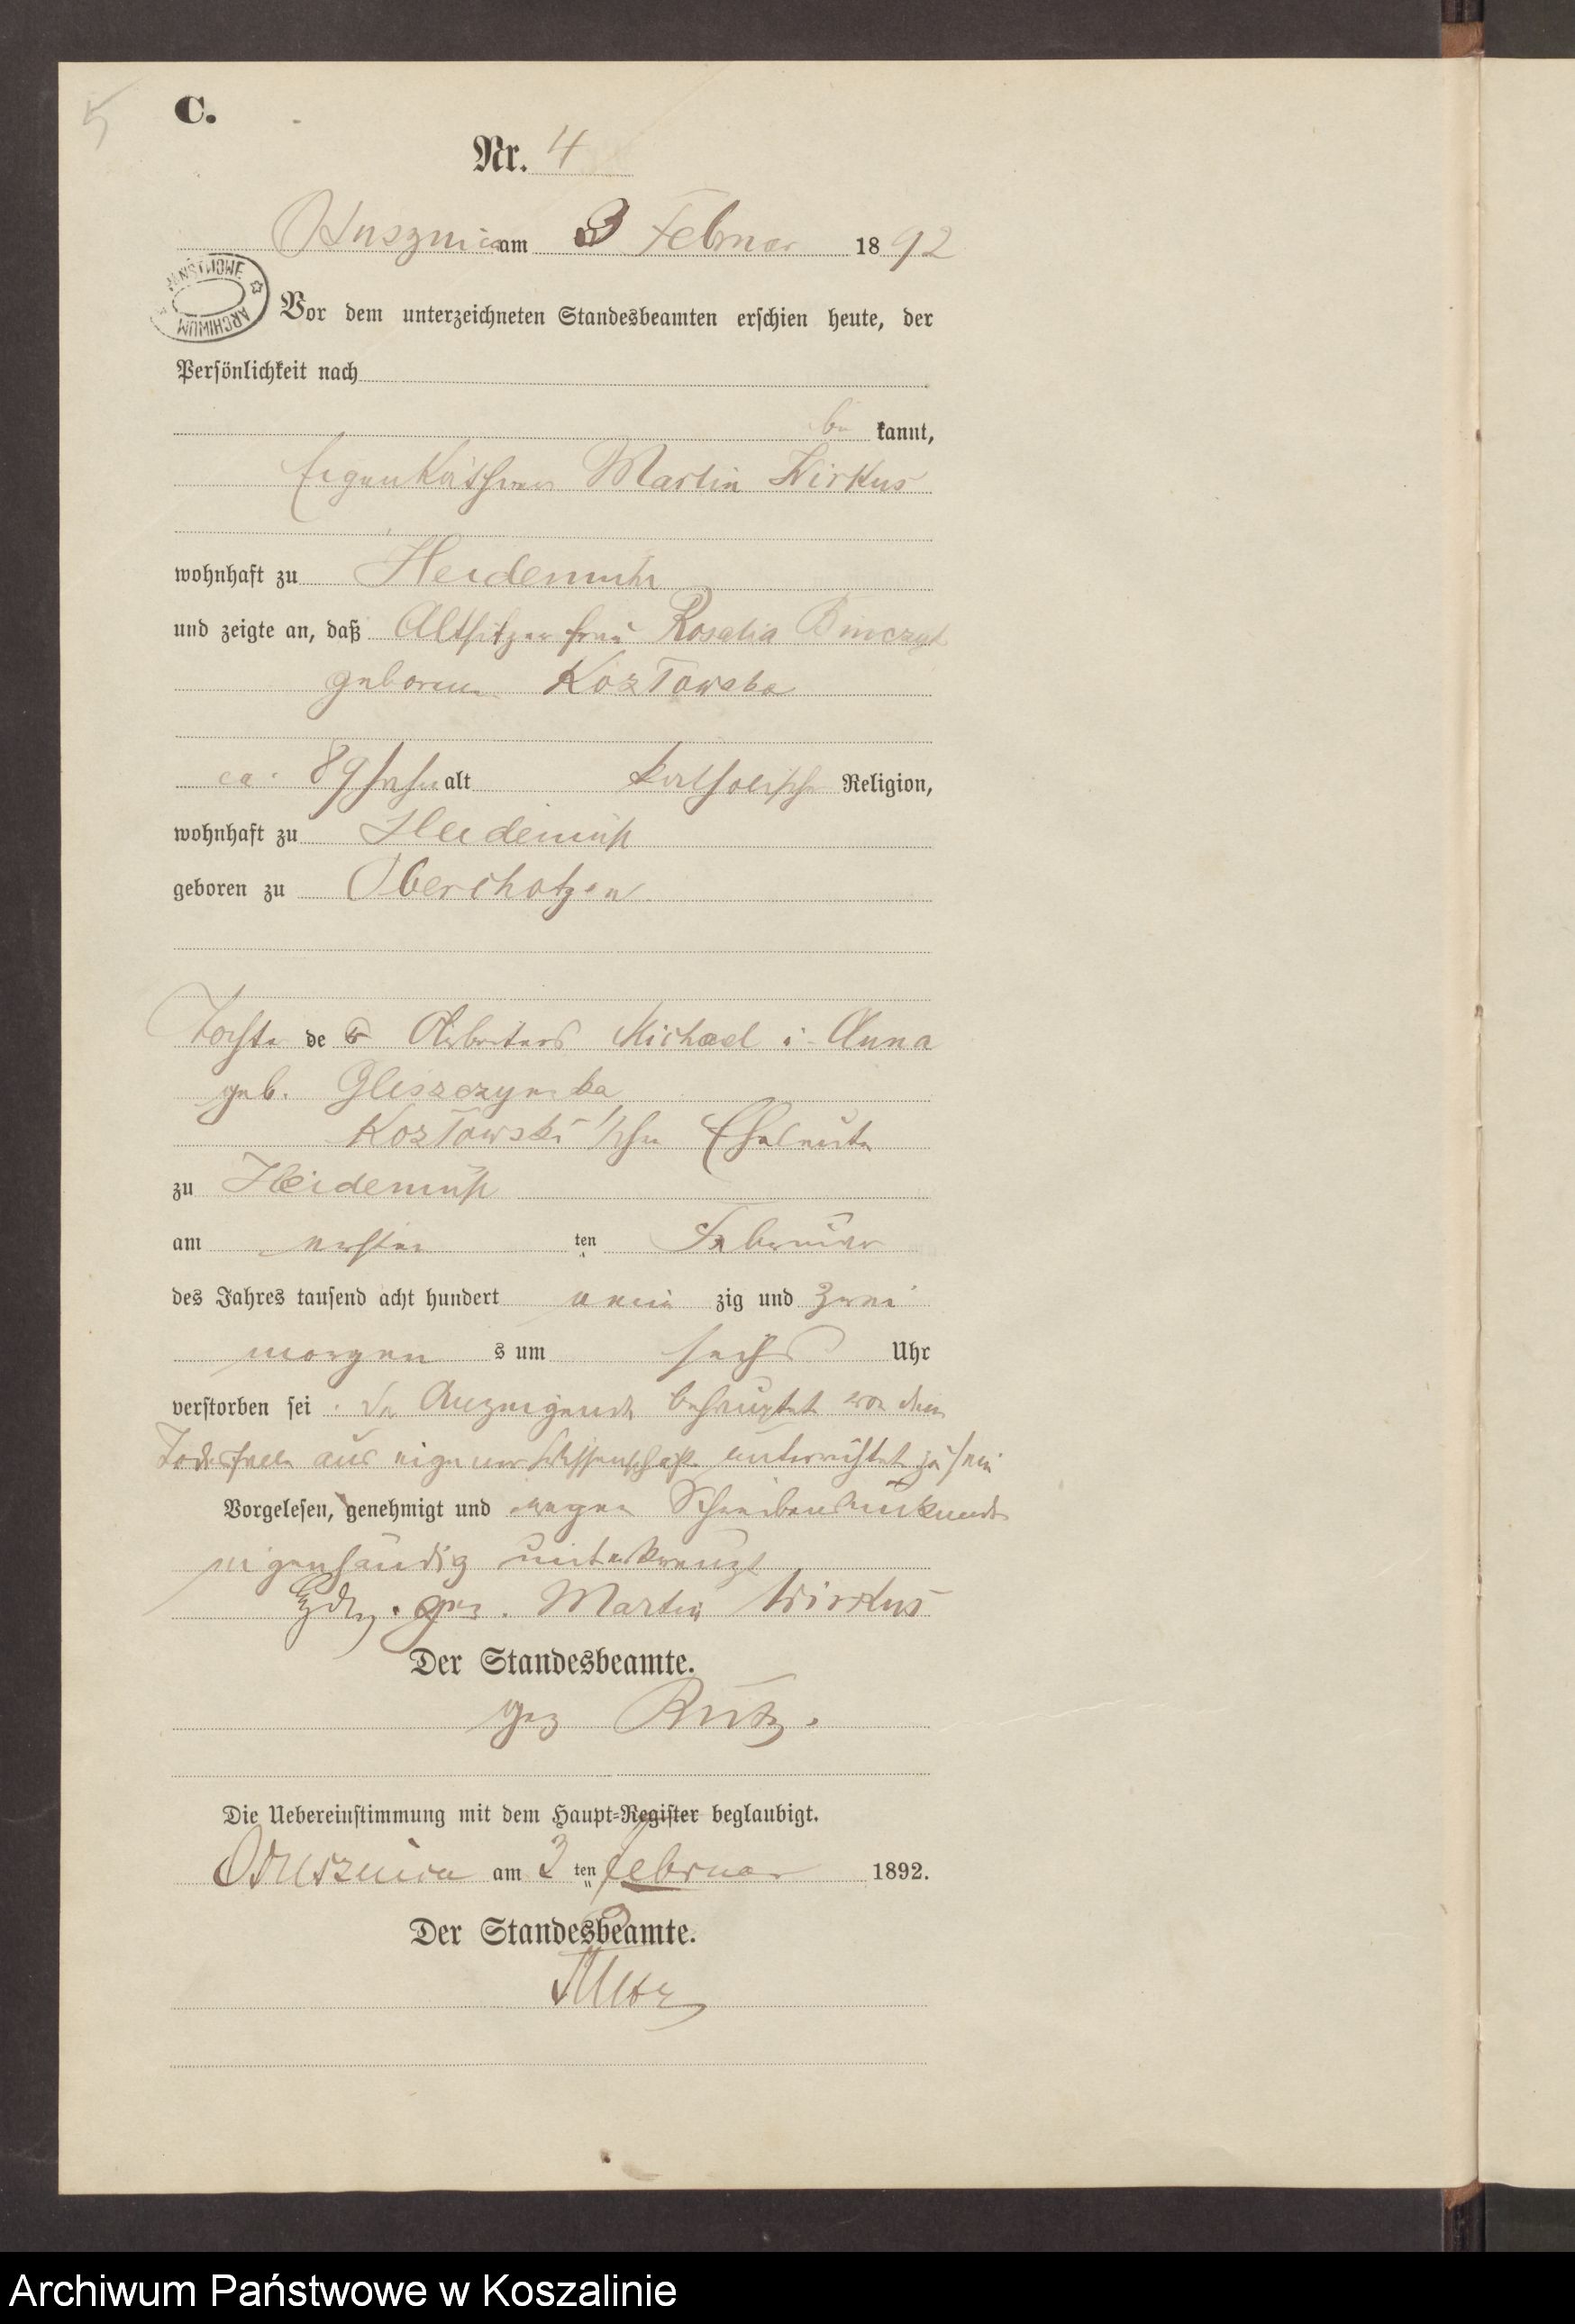 5
C.
Nr. 4
am 3 Februar 1892
PAŃSTWOWE
ARCHIWUM
Vor dem unterzeichneten Standesbeamten erschien heute, der
Persönlichkeit nach
be kannt,
Eigenkäthner Martin Wirkus
wohnhaft zu Heidemühl
und zeigte an, daß Altsitzerfrau Rosalia
geborene Kozłowska
ca. 89 Jahre alt katholischer Religion,
wohnhaft zu Heidemühl
geboren zu Oberchotzen
Tochter des Arbeiters Michael u. Anna
geb. Gliszczynska
Kozłowski'schen Eheleute
zu Heidemühl
am ersten ten Februar
des Jahres tausend acht hundert neun zig und zwei
morgen s um sechs Uhr
verstorben sei. Der Anzeigende behauptet von dem
Todesfalle aus eigener Wissenschaft unterrichtet zu sein
Vorgelesen, genehmigt und wegen Schreibensunkunde
eigenhändig unterkreuzt
gez. Martin Wirkus
Der Standesbeamte.
gez Rutz.
Die Uebereinstimmung mit dem Haupt-Register beglaubigt.
am 3 ten Februar 1892.
Der Standesbeamte.
Rutz
Archiwum Państwowe w Koszalinie